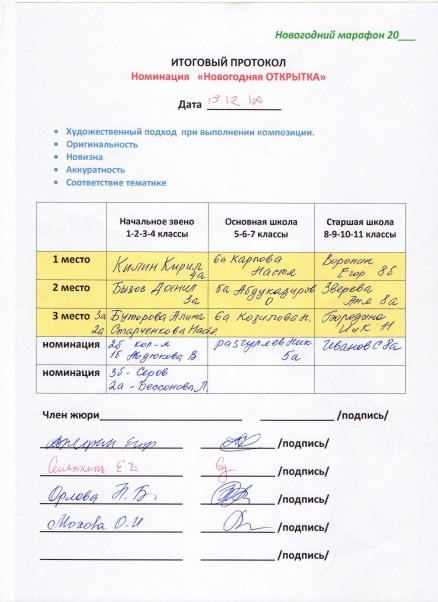 Новогодний марафон 20___
ИТОГОВЫЙ ПРОТОКОЛ
Номинация «Новогодняя ОТКРЫТКА»
Дата 13 12
Художественный подход при выполнении композиции.
Оригинальность
Новизна
Аккуратность
Соответствие тематике
Начальное звено
1-2-3-4 классы
Основная школа
5-6-7 классы
Старшая школа
8-9-10-11 классы
1 место
Килин Кирил
4а
6а Карпова
Настя
Воронин
Егор 8б
2 место
Бызов Данил
3а
5а Абдукадиров
О
Зверева
8а
3 место
3а Буторова Алина
2а Старченкова Настя
6а Козилова н.
Бородина
11
номинация
2б кол-я
1б В
разгуляев Ник.
5а
Иванов С 8а
номинация
3б - Серов
2а - Бессонова Л.
Член жюри___________________ /подпись/
Егор /подпись/
Е /подпись/
Орлова Н.В. /подпись/
Мохова О.И /подпись/
/подпись/